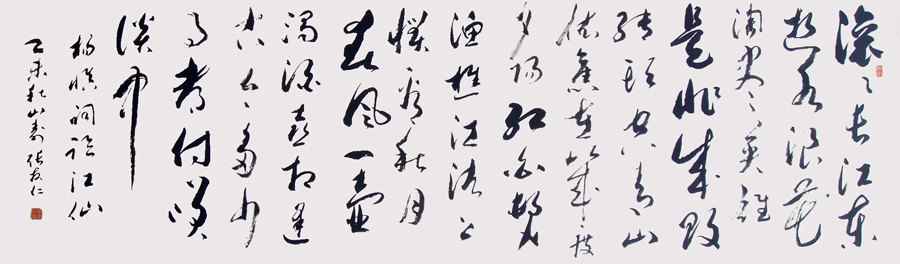 滚〻长江东
逝水浪花
淘尽〻英雄
是非成败
转头空青山
依旧在几度
夕阳红白发
渔樵江渚上
惯看秋月
春风一壶
浊酒喜相逢
古今〻多少
事都付笑
谈中
杨慎词临江仙
乙未秋山寿张友仁